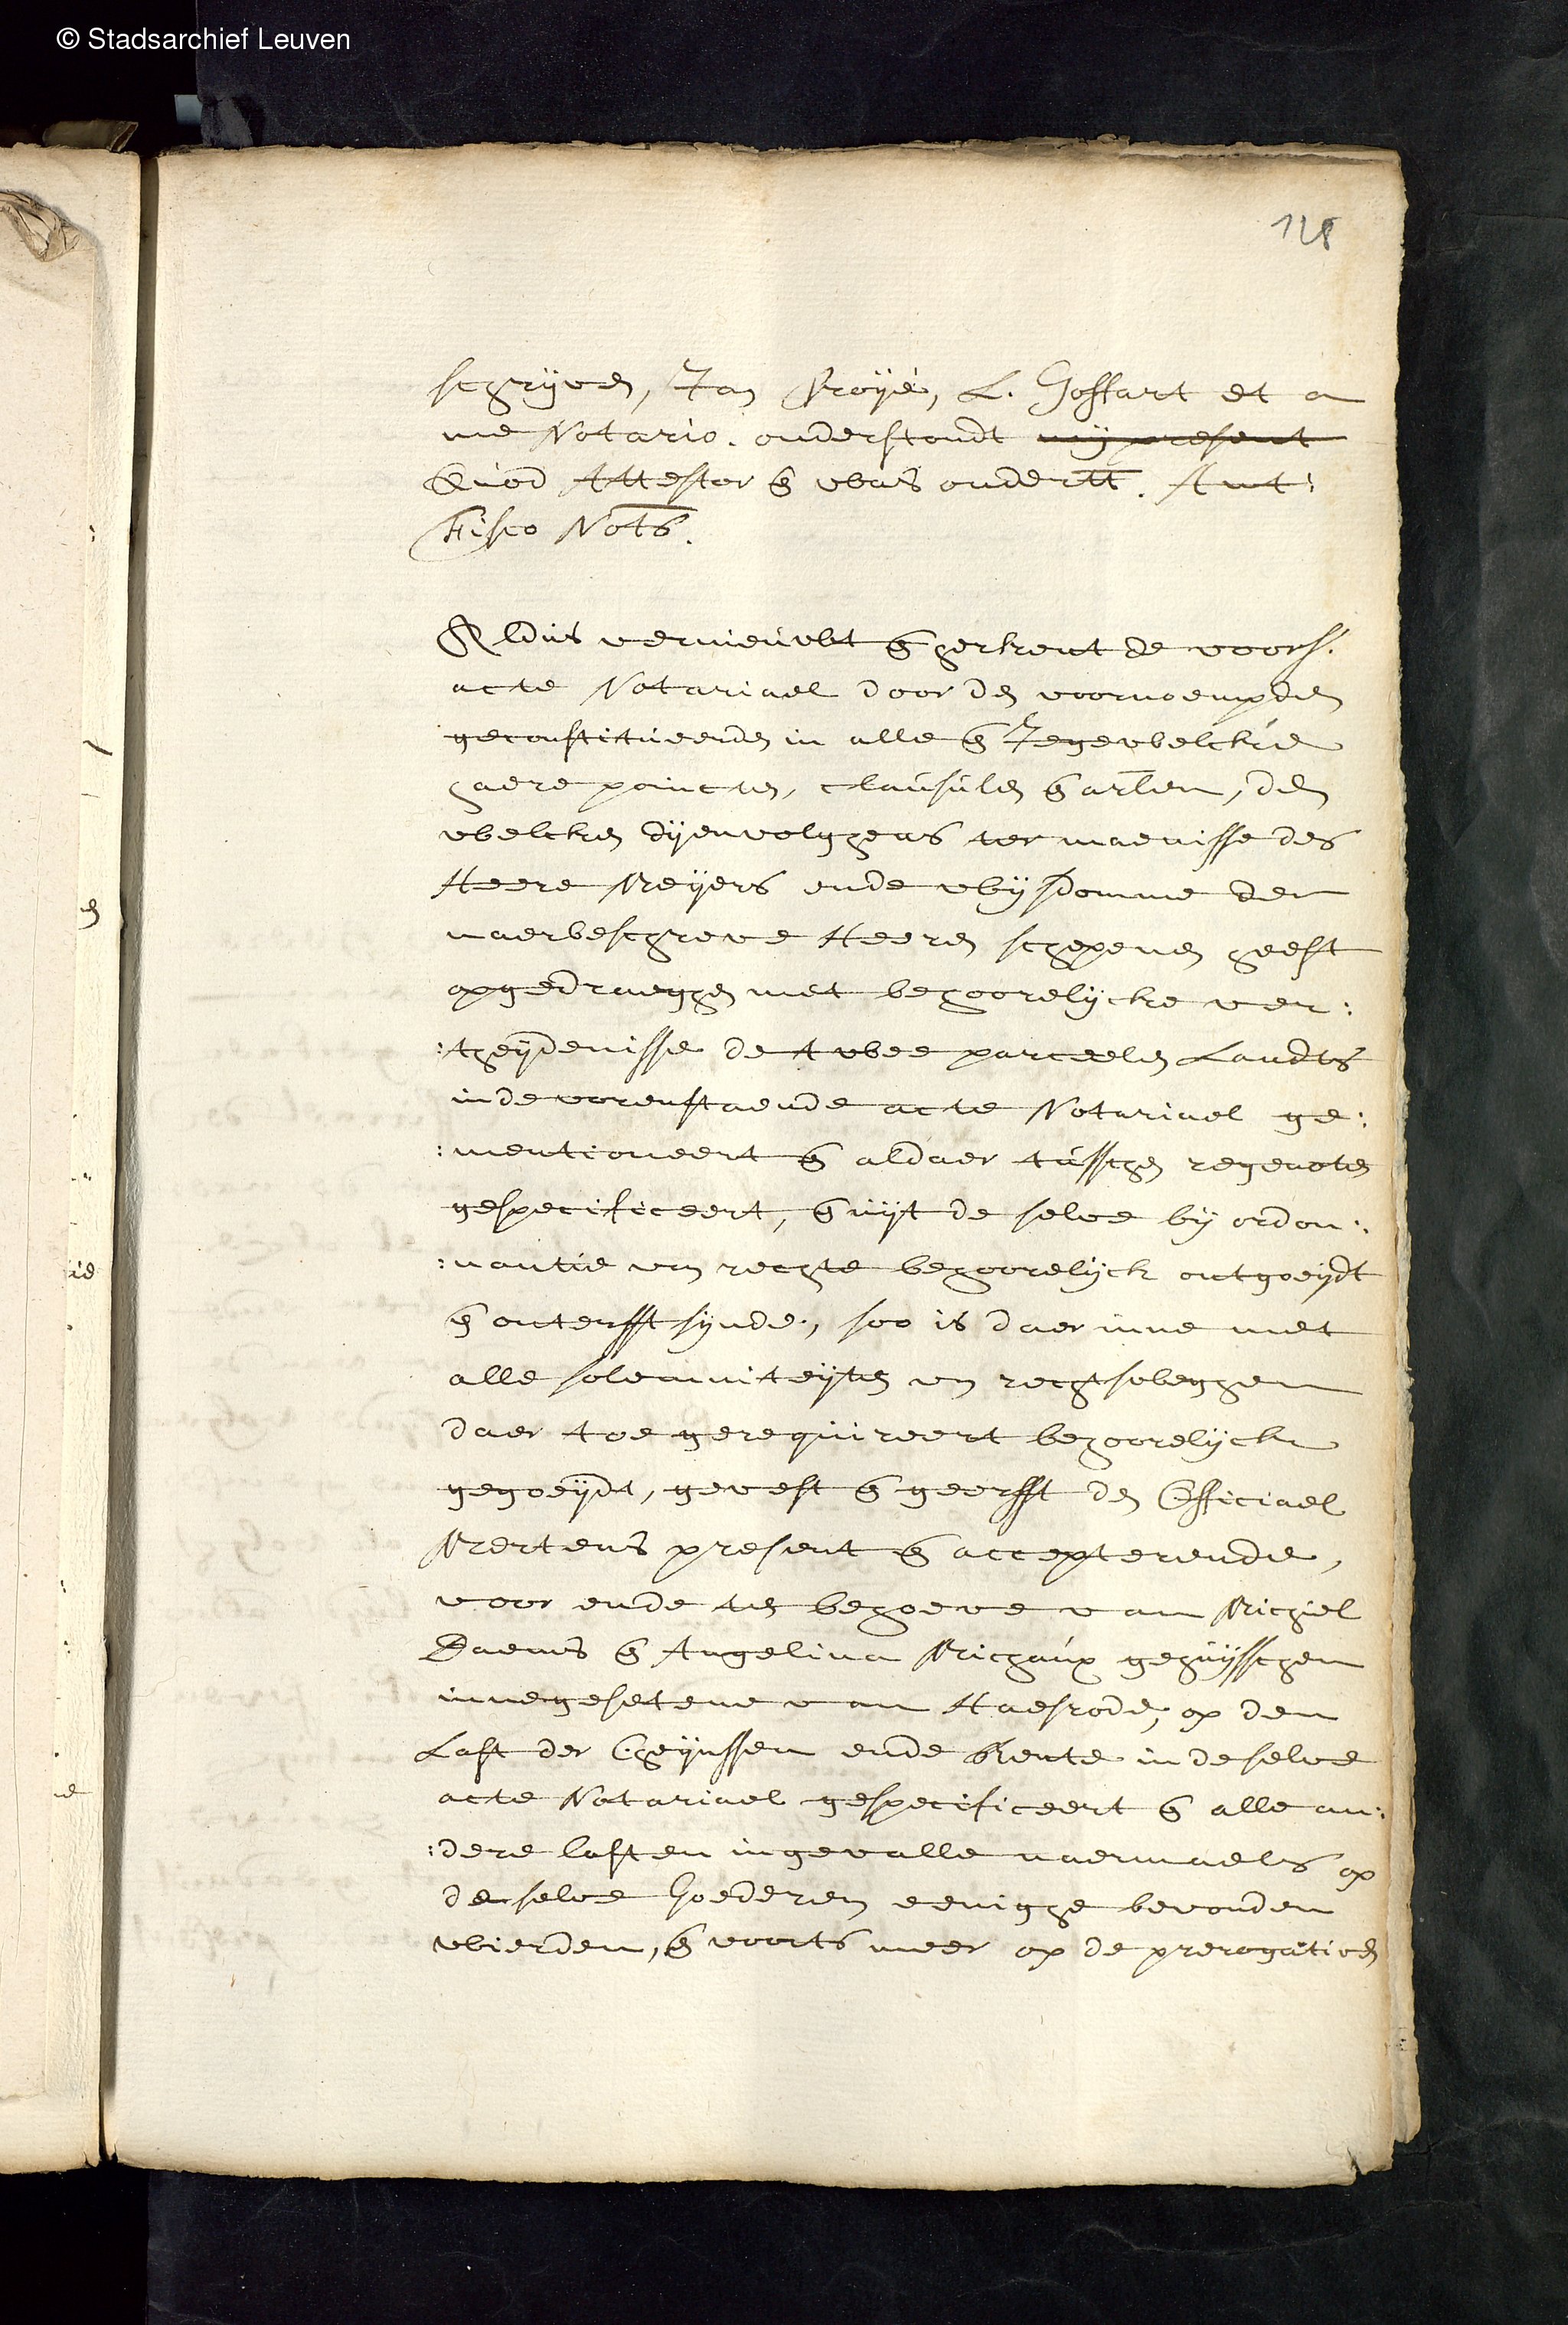 © Stadsarchief Leuven
128
schryven, Jan Proÿé, L. Goffart et a
me Notario. onderstondt mÿ present
Quod Attestor en̄ was ondertt. Ant:
Fisco Nots.
Aldus vernieuwt en̄ herkent de voors.
acte Notariael door den voornoempden
geconstitueerden in alle en̄ Iegewelcke
haere poincten, clausulen en̄ arlen, den
welcken dÿenvolghens ter maenisse des
Heere Meÿers ende wÿsdomme der
naerbeschreve Heeren schepenen heeft
opgedraeghen met behoorelÿcke ver:
:theÿdenisse de twee parceelen Landts
inde vorenstaende acte Notariael ge:
:mentioneert en̄ aldaer tusschen regenoten
gespecificeert, en̄ uÿt de selve bÿ ordon:
:nantie van rechte behoorelÿck ontgoeÿdt
en̄ onterfft sÿnde, soo is daer inne met
alle solemniteÿten van rechtsweghen
daer toe gerequireert behoorelÿck
gegoeÿdt, gevest en̄ geerfft den Officiael
Mertens present en̄ accepterende,
voor ende ten behoeve van Michiel
Daems en̄ Angelina Michaux gehuÿsschen
innegesetene van Haesrode, op den
Last der Cheÿnssen ende Rente in de selve
acte Notariael gespecificeert en̄ alle an:
:dere lasten ingevalle naermaels op
de selve Goederen eenighe bevonden
wierden, en̄ voorts meer op de prerogativen